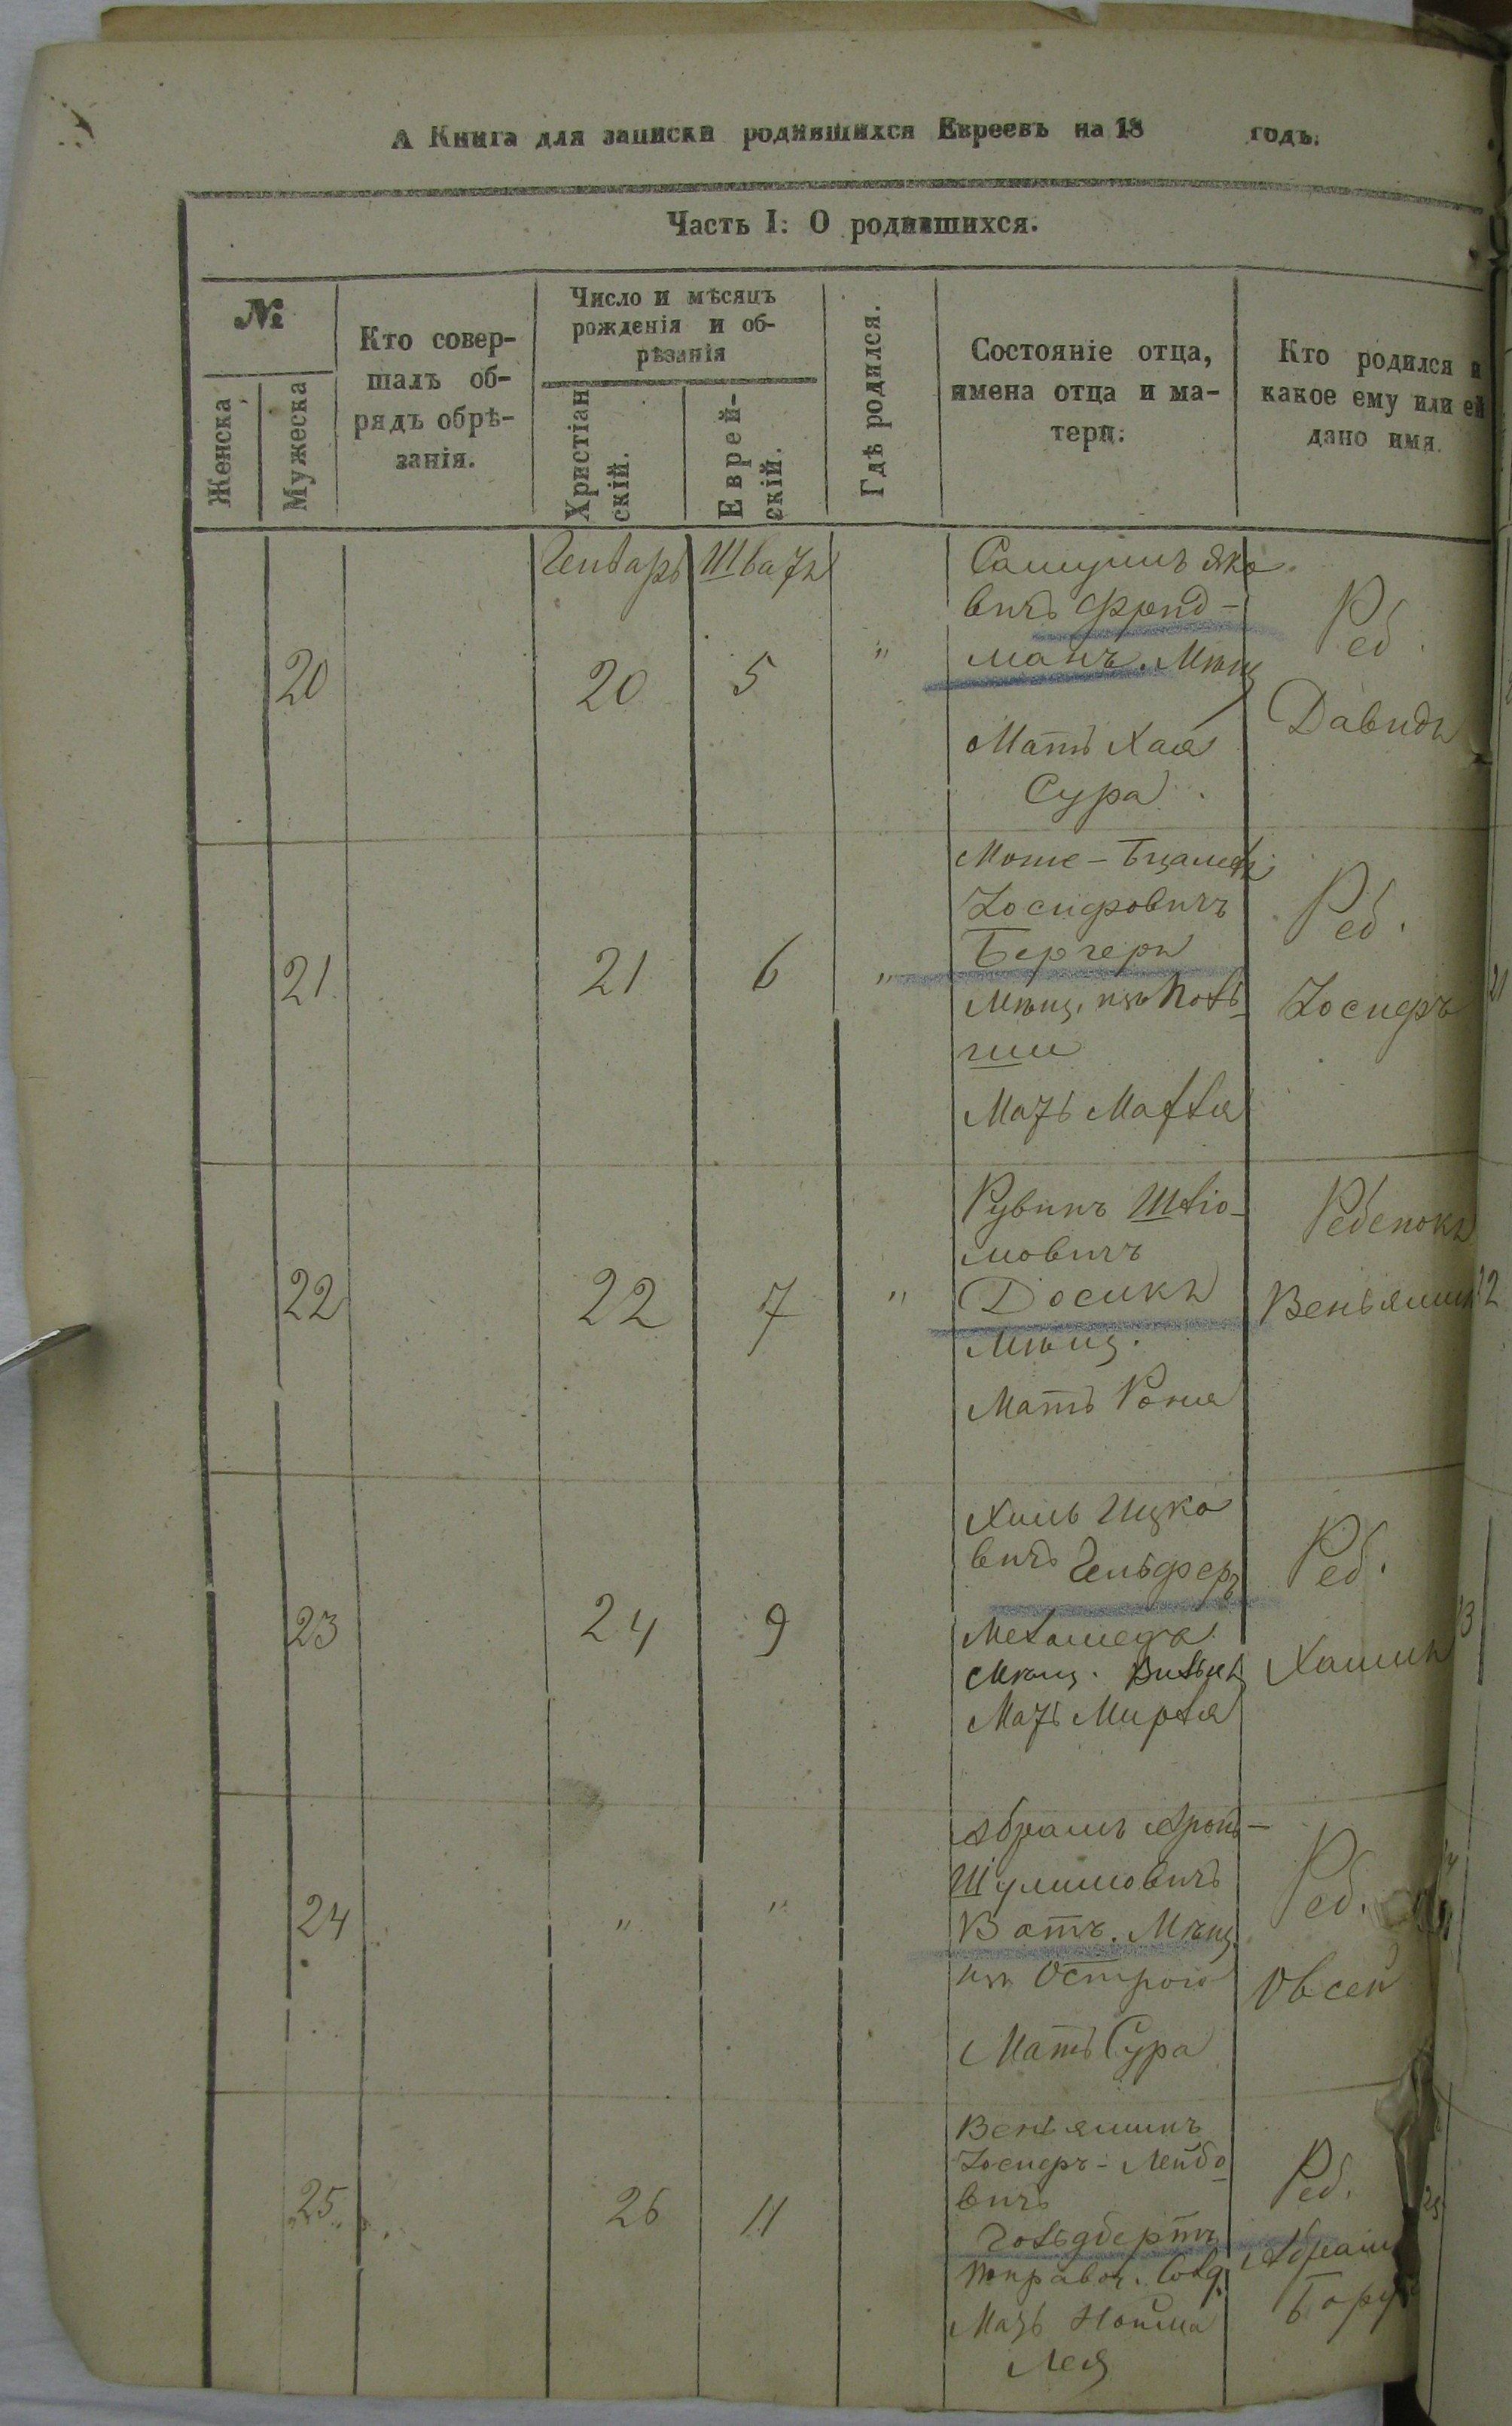 А Книга для записки родившихся Евреевъ на 18 годъ.
Часть I: О родившихся.
№
Женска
Мужеска
Кто совер-
шалъ об-
рядъ обрѣ-
занія.
Число и мѣсяцъ
рожденія и об-
рѣзанія
Христіан
скій.
Еврей-
скій.
Гдѣ родился.
Состояніе отца,
имена отца и ма-
тери.
Кто родился и
какое ему или ей
дано имя.
Генварь Шватъ
20 20 5 "
Самуилъ Яко
вичъ Фрид-
манъ. Мѣщ
Мать Хая
Сура.
Реб.
Давидъ
21 21 6 "
Моше-Бцалель
Іосифовичъ
Бергеръ
Мѣщ. изъ
Мать Малля
Реб.
Іосифъ
22 22 7 "
Рувинъ Шліо-
мовичъ
Досикъ
Мѣщ.
Мать Роня
Ребенокъ
Веньяминъ
23 24 9
Хиль Ицко
вичъ Гельферъ
Меламедъ
Мѣщ.
Мать Мирля
Реб.
Хаимъ
24 " "
Абрамъ Аронъ-
Шулимовичъ
Ватъ. Мѣщ.
изъ Острога
Мать Сура
Реб.
Овсей
25 26 11
Веньяминъ
Іосифъ-Лейбо
вичъ
Гольдбертъ
Солд.
Мать Нойма
Лея
Реб.
Абрамъ